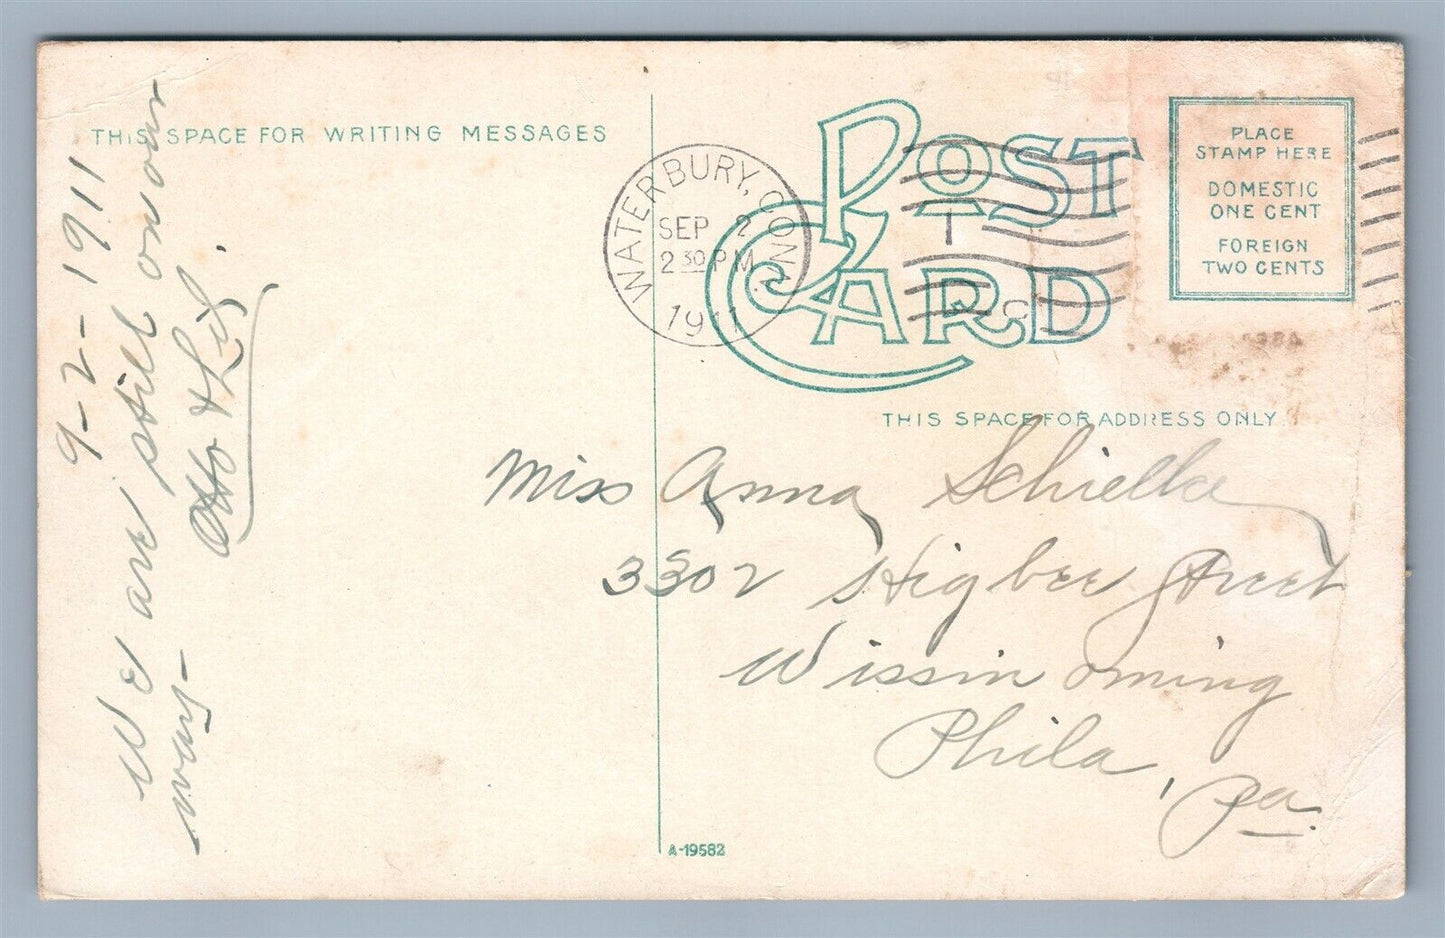 THIS SPACE FOR WRITING MESSAGES
9-2-1911
We are still on our
way-
Otto & Liz.
WATERBURY, CONN.
SEP 2
2 30 PM
1911
POST CARD
PLACE
STAMP HERE
DOMESTIC
ONE CENT
FOREIGN
TWO CENTS
THIS SPACE FOR ADDRESS ONLY.
Miss Anna Schielke
3302 Higbee Street
Wissinoming
Phila, Pa.
A-19582